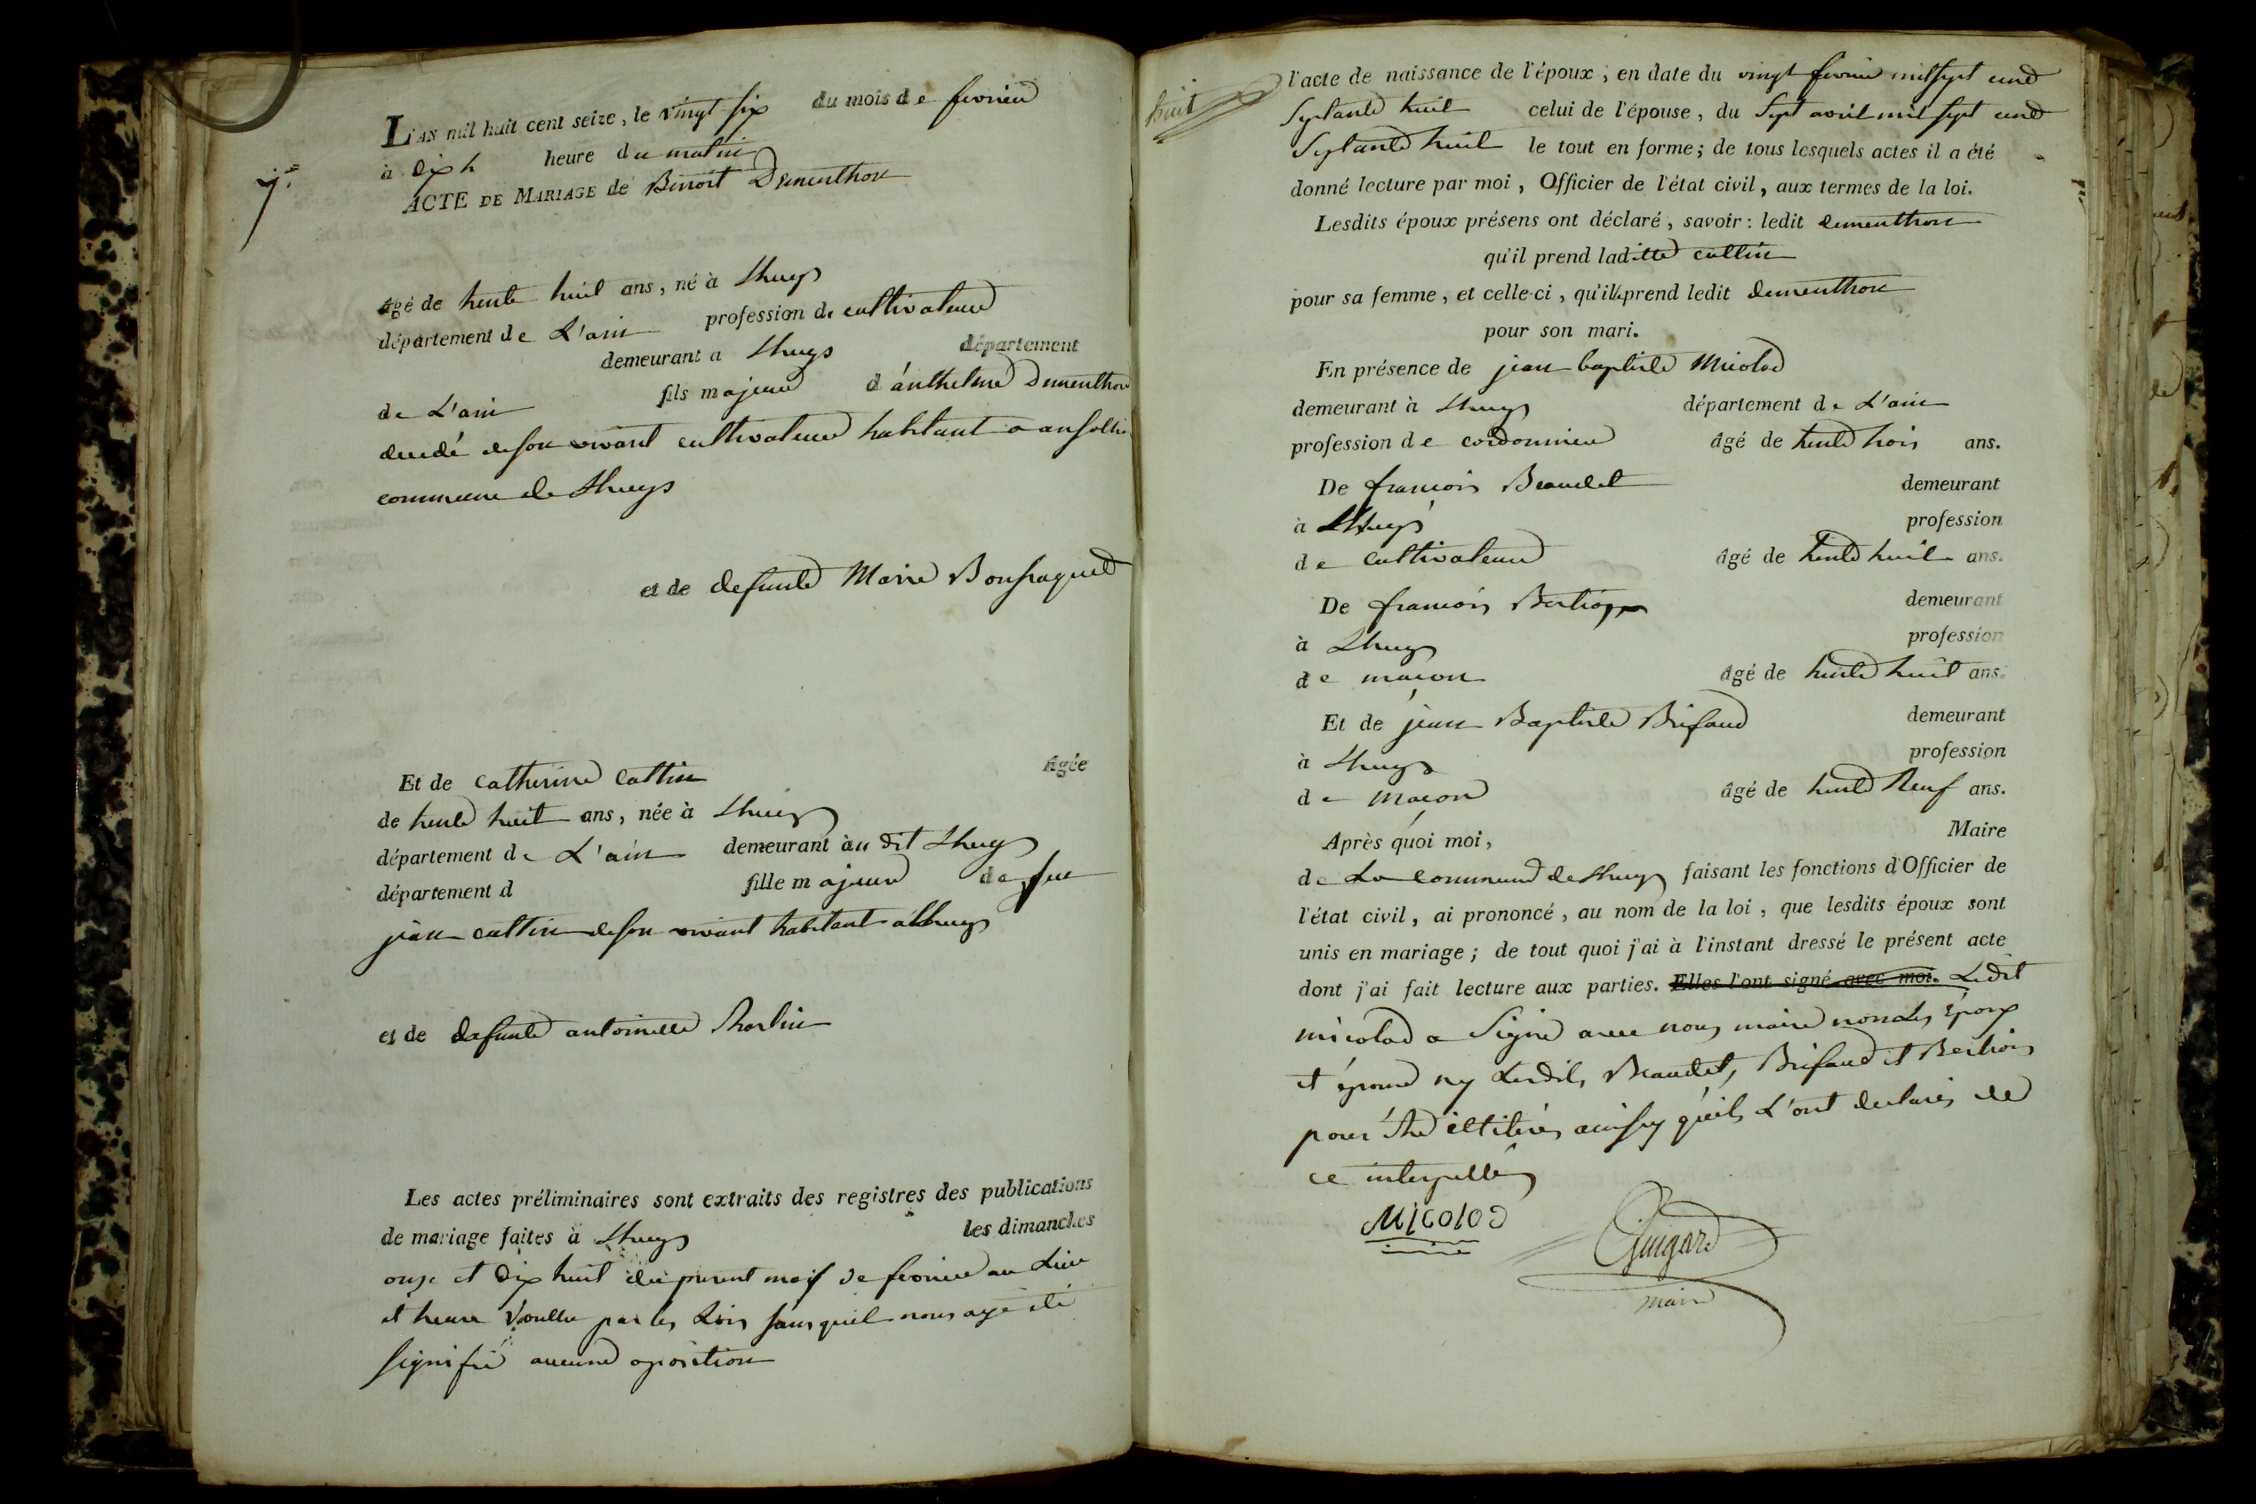 7.e
L'AN mil huit cent seize, le vingt six du mois de fevrier
à dix h heure du matin
ACTE DE MARIAGE de Benoit Dementhon
âgé de trente huit ans, né à Lhuys
département de L'ain profession de cultivateur
demeurant a Lhuys département
de L'ain fils majeur d'anthelme Dementhon
decedé de son vivant cultivateur habitant a ansolin
commune de Lhuys
et de defunte Marie Bonfraques
Et de catherine Cattin âgée
de trente huit ans, née à Lhuys
département de L'ain demeurant au dit Lhuys
département d fille majeure de feu
jean cattin de son vivant habitant a Lhuys
et de defunte antoinette
Les actes préliminaires sont extraits des registres des publications
de mariage faites à Lhuys les dimanches
onze et dix huit du present mois de fevrier au Lieu
et heure voullu par les Lois sans quil nous aye été
signifié aucune oposition
huit
l'acte de naissance de l'époux, en date du vingt fevrier mil sept cent
septante huit celui de l'épouse, du sept avril mil sept cent
septante huit le tout en forme; de tous lesquels actes il a été
donné lecture par moi, Officier de l'état civil, aux termes de la loi.
Lesdits époux présens ont déclaré, savoir: ledit dementhon
qu'il prend laditte cattin
pour sa femme, et celle-ci, qu'il prend ledit dementhon
pour son mari.
En présence de jean baptiste Micolod
demeurant à Lhuys département de L'ain
profession de cordonnier âgé de trente trois ans.
De francois Beaudet demeurant
à Lhuys profession
de cultivateur âgé de trente huit ans.
De francois Bertrois demeurant
à Lhuys profession
de macon âgé de trente huit ans.
Et de jean Baptiste Brifaud demeurant
à Lhuys profession
de macon âgé de trente Neuf ans.
Après quoi moi, Maire
de La commune de Lhuys faisant les fonctions d'Officier de
l'état civil, ai prononcé, au nom de la loi, que lesdits époux sont
unis en mariage; de tout quoi j'ai à l'instant dressé le présent acte
dont j'ai fait lecture aux parties. Elles l'ont signé avec moi. Ledit
micolod a Signé avec nous maire non Les Epoux
et épouse ny Lesdits Beaudet, Brifaud et Bertrois
pour être iltitérés ainsy qu'ils L'ont declarés de
ce interpellés
MICOLOD
Guigard
maire